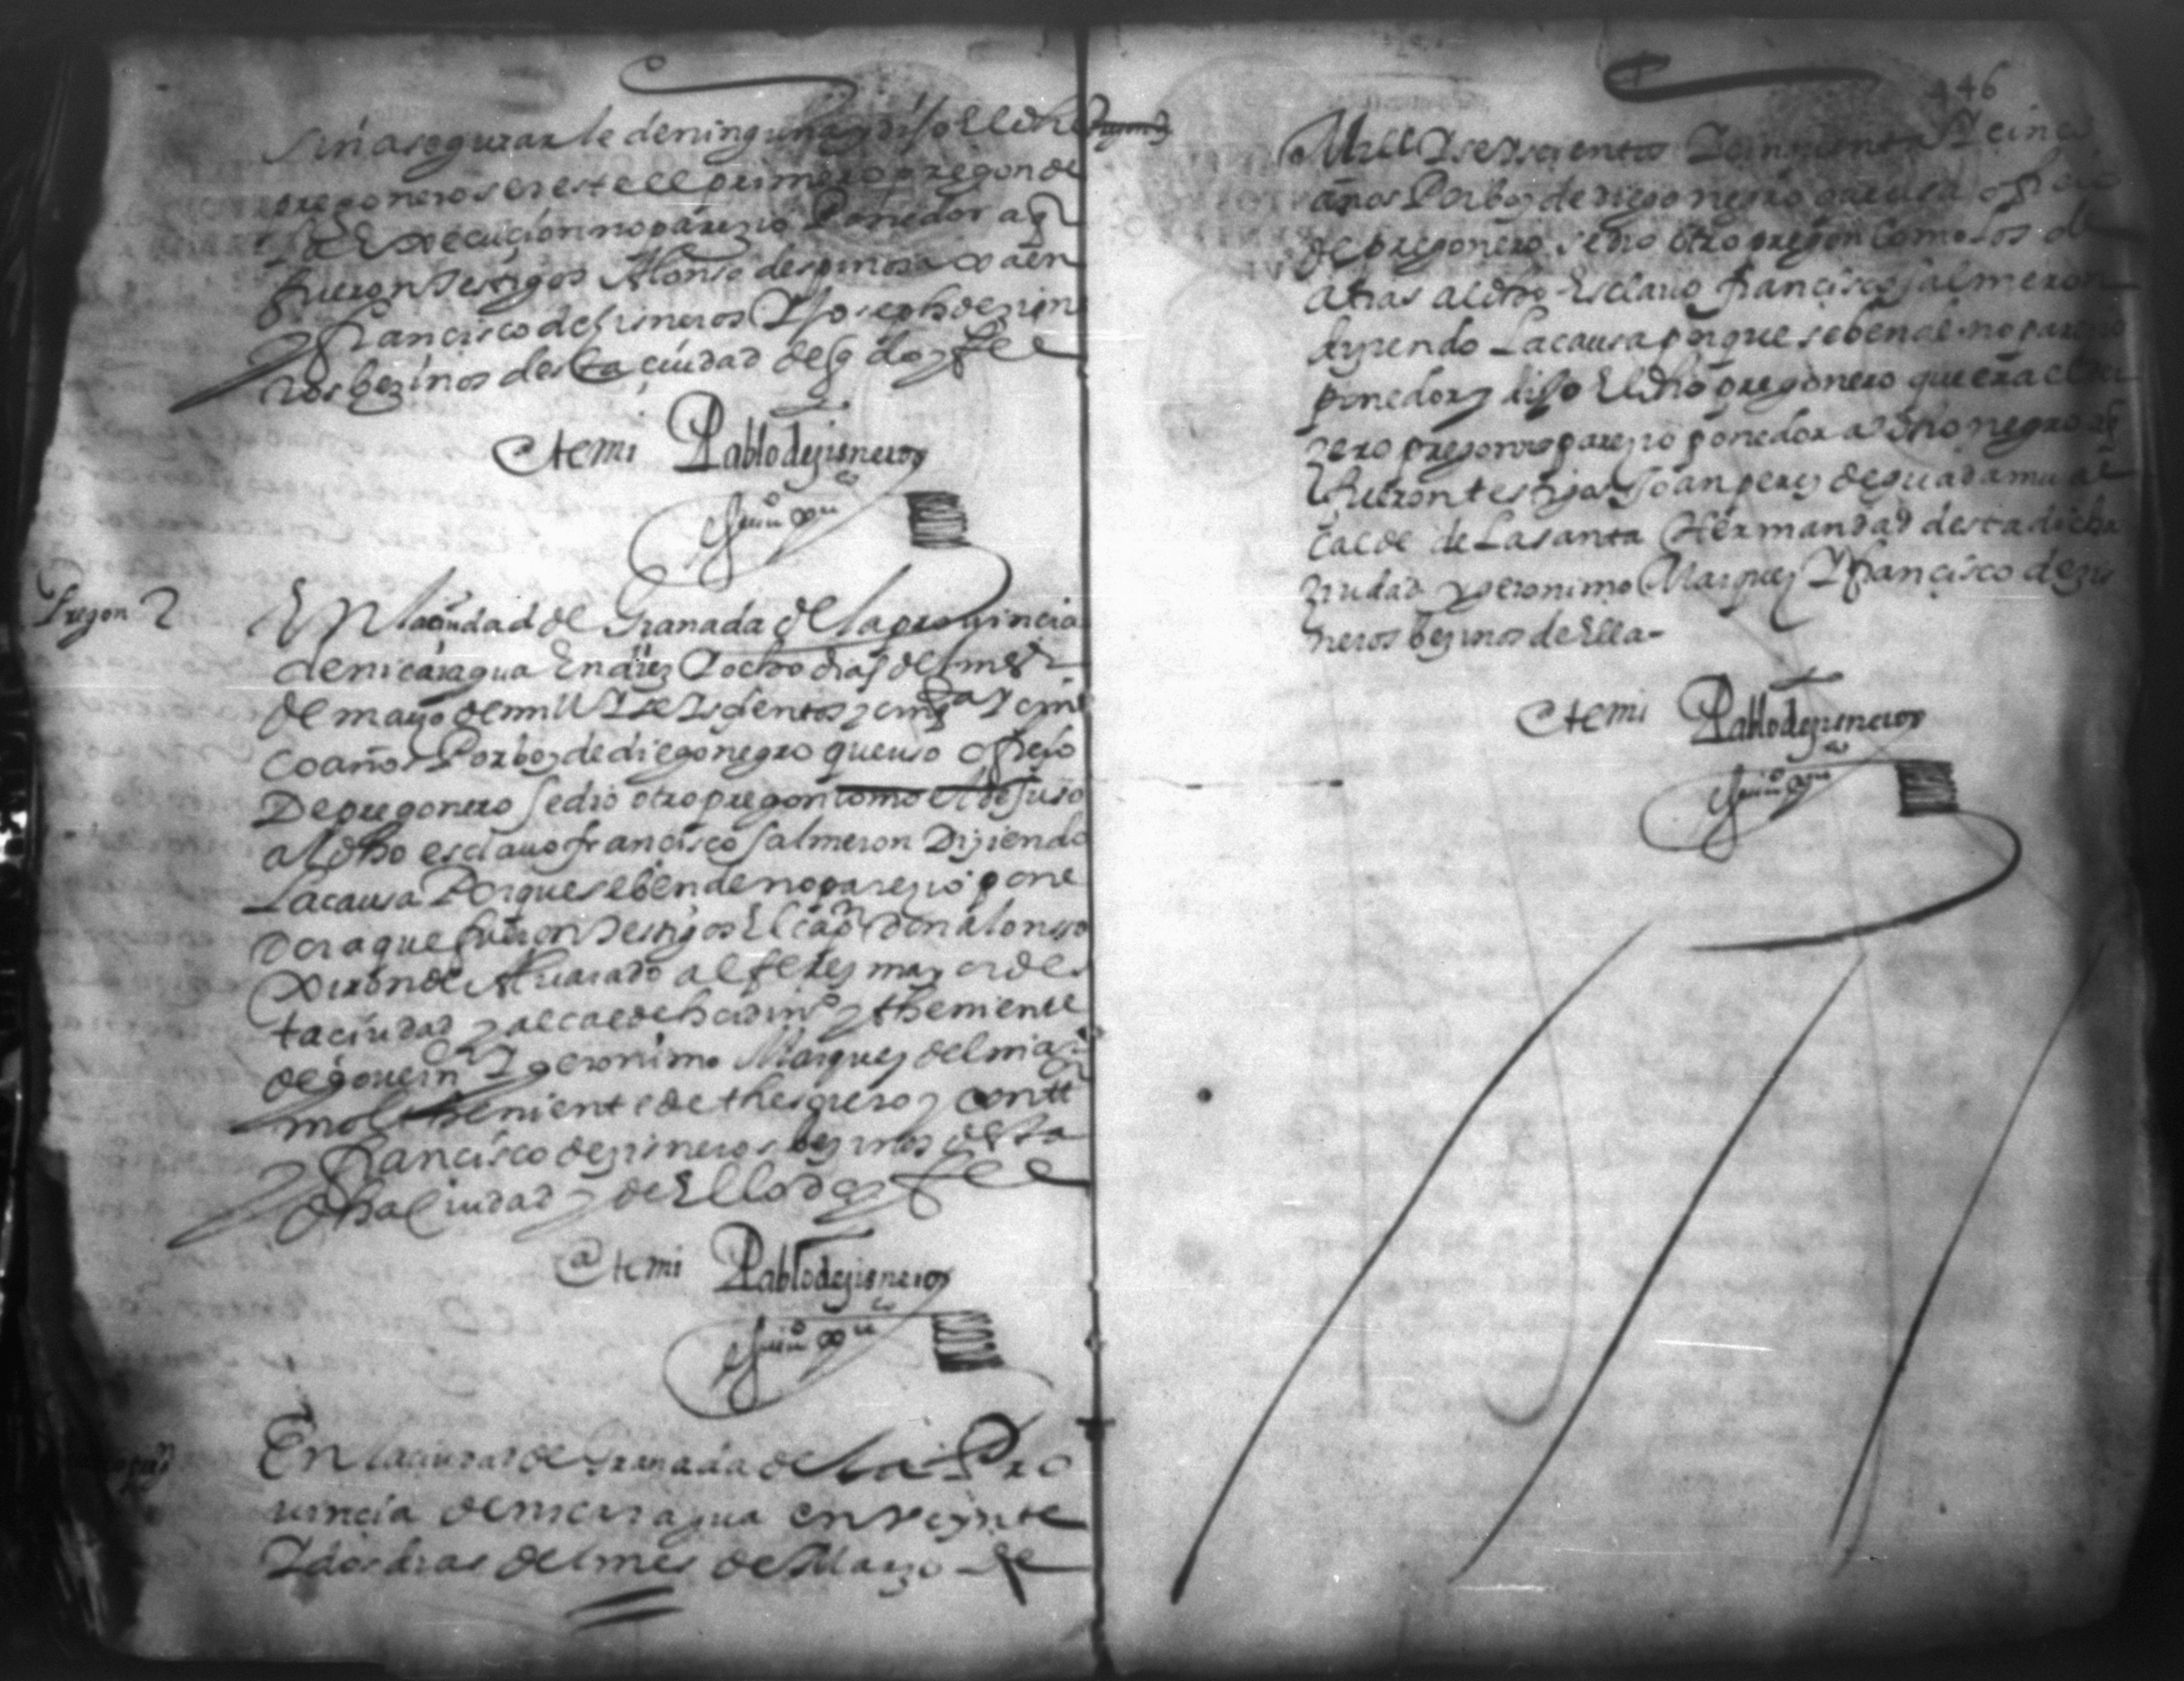 sin asegurarle de ninguna y dijo el dho
pregonero ser este el primero pregon de
la Execucion no parezio Ponedor a q
fueron Testigos Alonso despinosa xaen
y francisco de Zisneros Y Joseph de zisne
ros bezinos desta ciudad de q doy fee
Ante mi Pablo de zisneros
essno ppco
Pregon 2 En la ciudad de Granada de la prouincia
de nicaragua En diez Y ocho dias del mes
de mayo de mill Y seYscientos y cinqta Y cin
co años Por boz de diego negro que uso ofisio
De pregonero se dio otro pregon como el de suso
al dho esclauo francisco salmeron Diziendo
La causa Porque se bende no parezio pone
dor a que fueron Testigos El capn Don alonsso
Xiron de Aluarado alferez mayor des
ta ciudad y alcalde hordinº y theniente
de gouern Y geronimo Marquez del mar
mol theniente de thesorero y contt
y francisco de zisneros bezinos desta
dha Ciudad y de Ello doy fee
Ante mi Pablo de zisneros
essno ppco
En la ciudad de Granada de la Pro
uincia de nicaragua en veynte
Y dos dias del mes de Mayo de
446
Mill Y seYscientos Y cinquenta Y cinco
años Por boz de diego negro que usa ofisio
de pregonero se dio otro pregon Como Los de
atras al dho Esclauo francisco salmeron
diziendo La causa porque se bende no parezio
ponedor y dijo El dho pregonero que era el ter
zero pregon no parezio ponedor a dho negro a q
fueron testigos Joan perez de guadamuz al
calde de La santa Hermandad desta dicha
ziudad y geronimo Marquez Y francisco de zis
neros bezinos de Ella-
Ante mi Pablo de zisneros
essno ppco